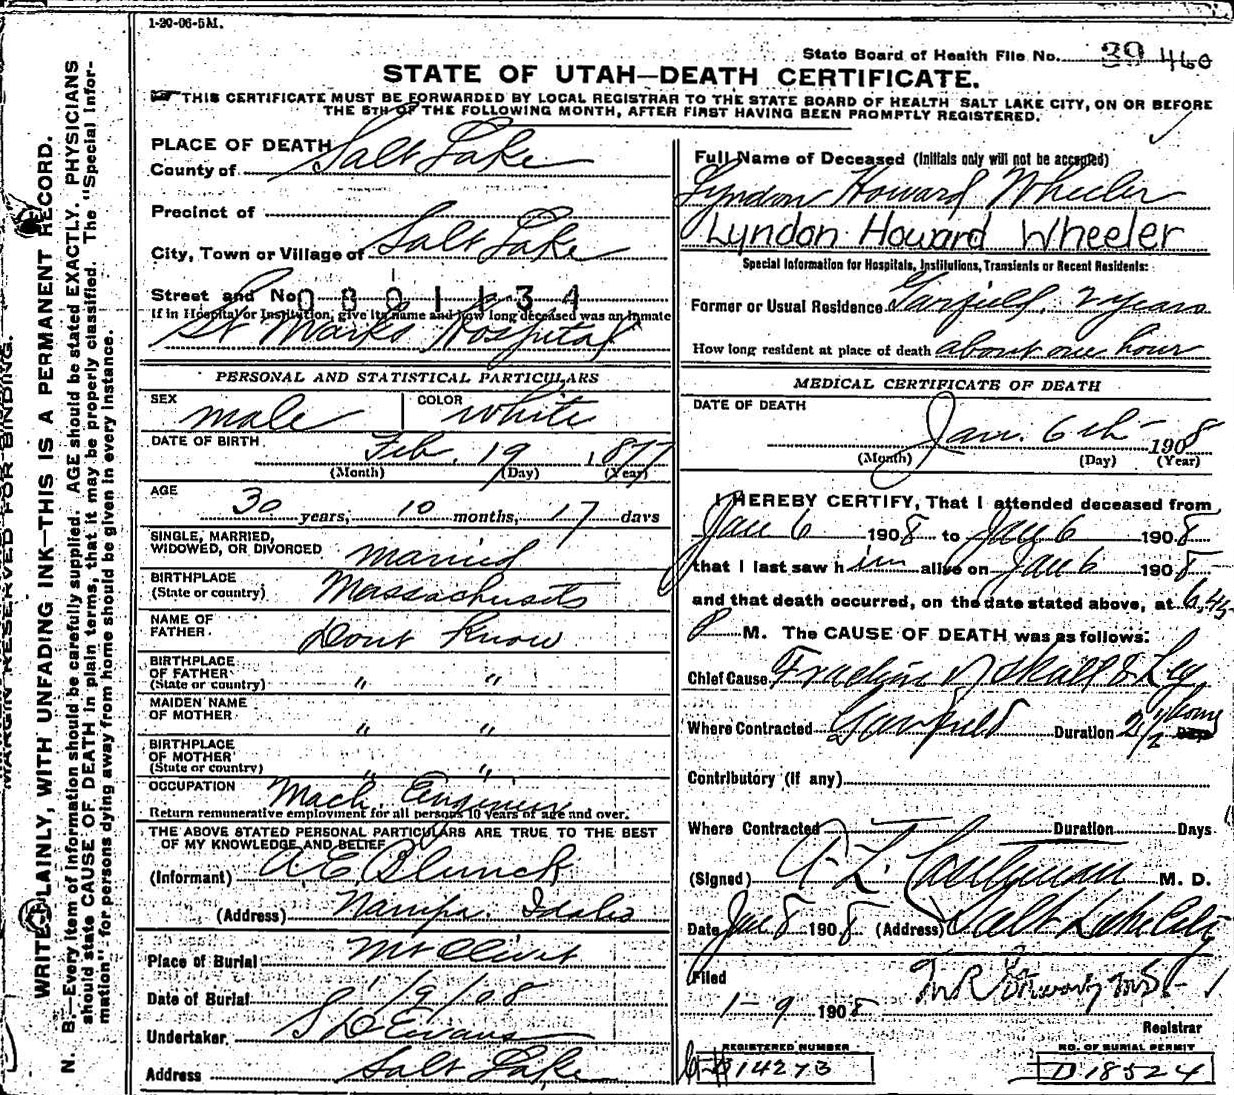 1-20-06-5M.
State Board of Health File No. 39 460
STATE OF UTAH—DEATH CERTIFICATE.
THIS CERTIFICATE MUST BE FORWARDED BY LOCAL REGISTRAR TO THE STATE BOARD OF HEALTH SALT LAKE CITY, ON OR BEFORE
THE 5TH OF THE FOLLOWING MONTH, AFTER FIRST HAVING BEEN PROMPTLY REGISTERED.
MARGIN RESERVED FOR BINDING.
WRITE PLAINLY, WITH UNFADING INK—THIS IS A PERMANENT RECORD.
N. B.—Every item of information should be carefully supplied. AGE should be stated EXACTLY. PHYSICIANS
should state CAUSE OF DEATH in plain terms, that it may be properly classified. The "Special Infor-
mation" for persons dying away from home should be given in every instance.
PLACE OF DEATH
County of Salt Lake
Precinct of
City, Town or Village of Salt Lake
Street and No. 0801134
If in Hospital or Institution, give its name and how long deceased was an inmate
St Marks Hospital
PERSONAL AND STATISTICAL PARTICULARS
SEX male COLOR white
DATE OF BIRTH Feb. 19 1877
(Month) (Day) (Year)
AGE
30 years, 10 months, 17 days
SINGLE, MARRIED,
WIDOWED, OR DIVORCED married
BIRTHPLACE
(State or country) Massachusets
NAME OF
FATHER Dont Know
BIRTHPLACE
OF FATHER
(State or country) " "
MAIDEN NAME
OF MOTHER " "
BIRTHPLACE
OF MOTHER
(State or country) " "
OCCUPATION Mach. Engineer
Return remunerative employment for all persons 10 years of age and over.
THE ABOVE STATED PERSONAL PARTICULARS ARE TRUE TO THE BEST
OF MY KNOWLEDGE AND BELIEF
(Informant) A E Blunck
(Address) Nampa. Idaho
Place of Burial Mt Olivet
Date of Burial 1/9/08
Undertaker S D Evans
Address Salt Lake
Full Name of Deceased (Initials only will not be accepted)
Lyndon Howard Wheeler
Lyndon Howard Wheeler
Special Information for Hospitals, Institutions, Transients or Recent Residents:
Former or Usual Residence Garfield. 2 years
How long resident at place of death about one hour
MEDICAL CERTIFICATE OF DEATH
DATE OF DEATH
Jan. 6th 1908
(Month) (Day) (Year)
I HEREBY CERTIFY, That I attended deceased from
Jan 6 1908 to Jan 6 1908
that I last saw him alive on Jan 6 1908
and that death occurred, on the date stated above, at 6,45
P M. The CAUSE OF DEATH was as follows:
Chief Cause Fracture of Skull & Leg
Where Contracted Garfield Duration 2 1/2 hours
Contributory (if any)
Where Contracted Duration Days
(Signed) A. L. M. D.
Date Jan 8 1908 (Address) Salt Lake City
Filed
1-9 1908
Registrar
REGISTERED NUMBER NO. OF BURIAL PERMIT
14273 D 18524